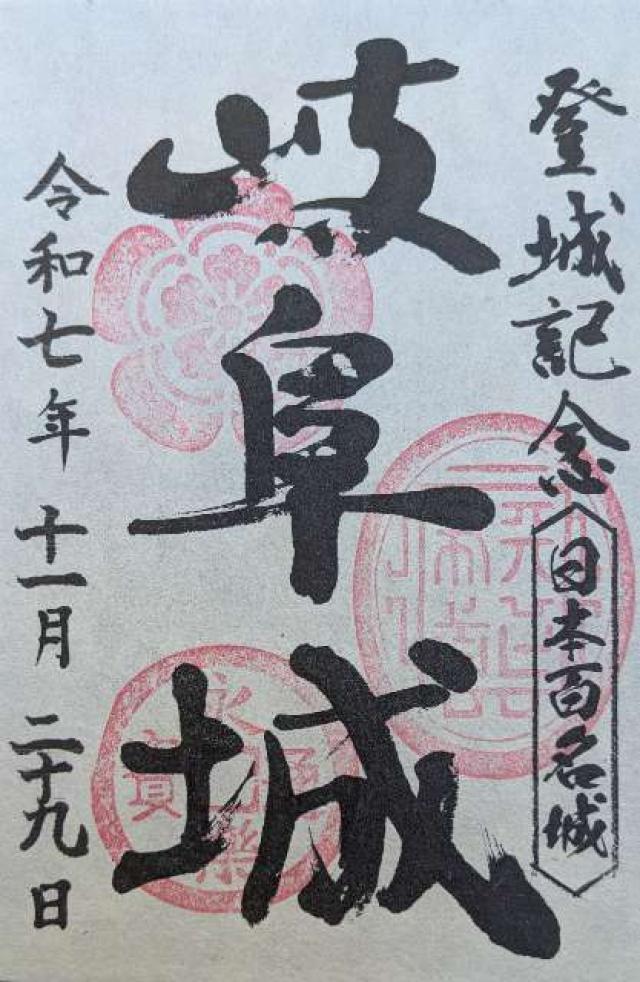 登城記念
日本百名城
岐阜城
令和七年 十一月 二十九日